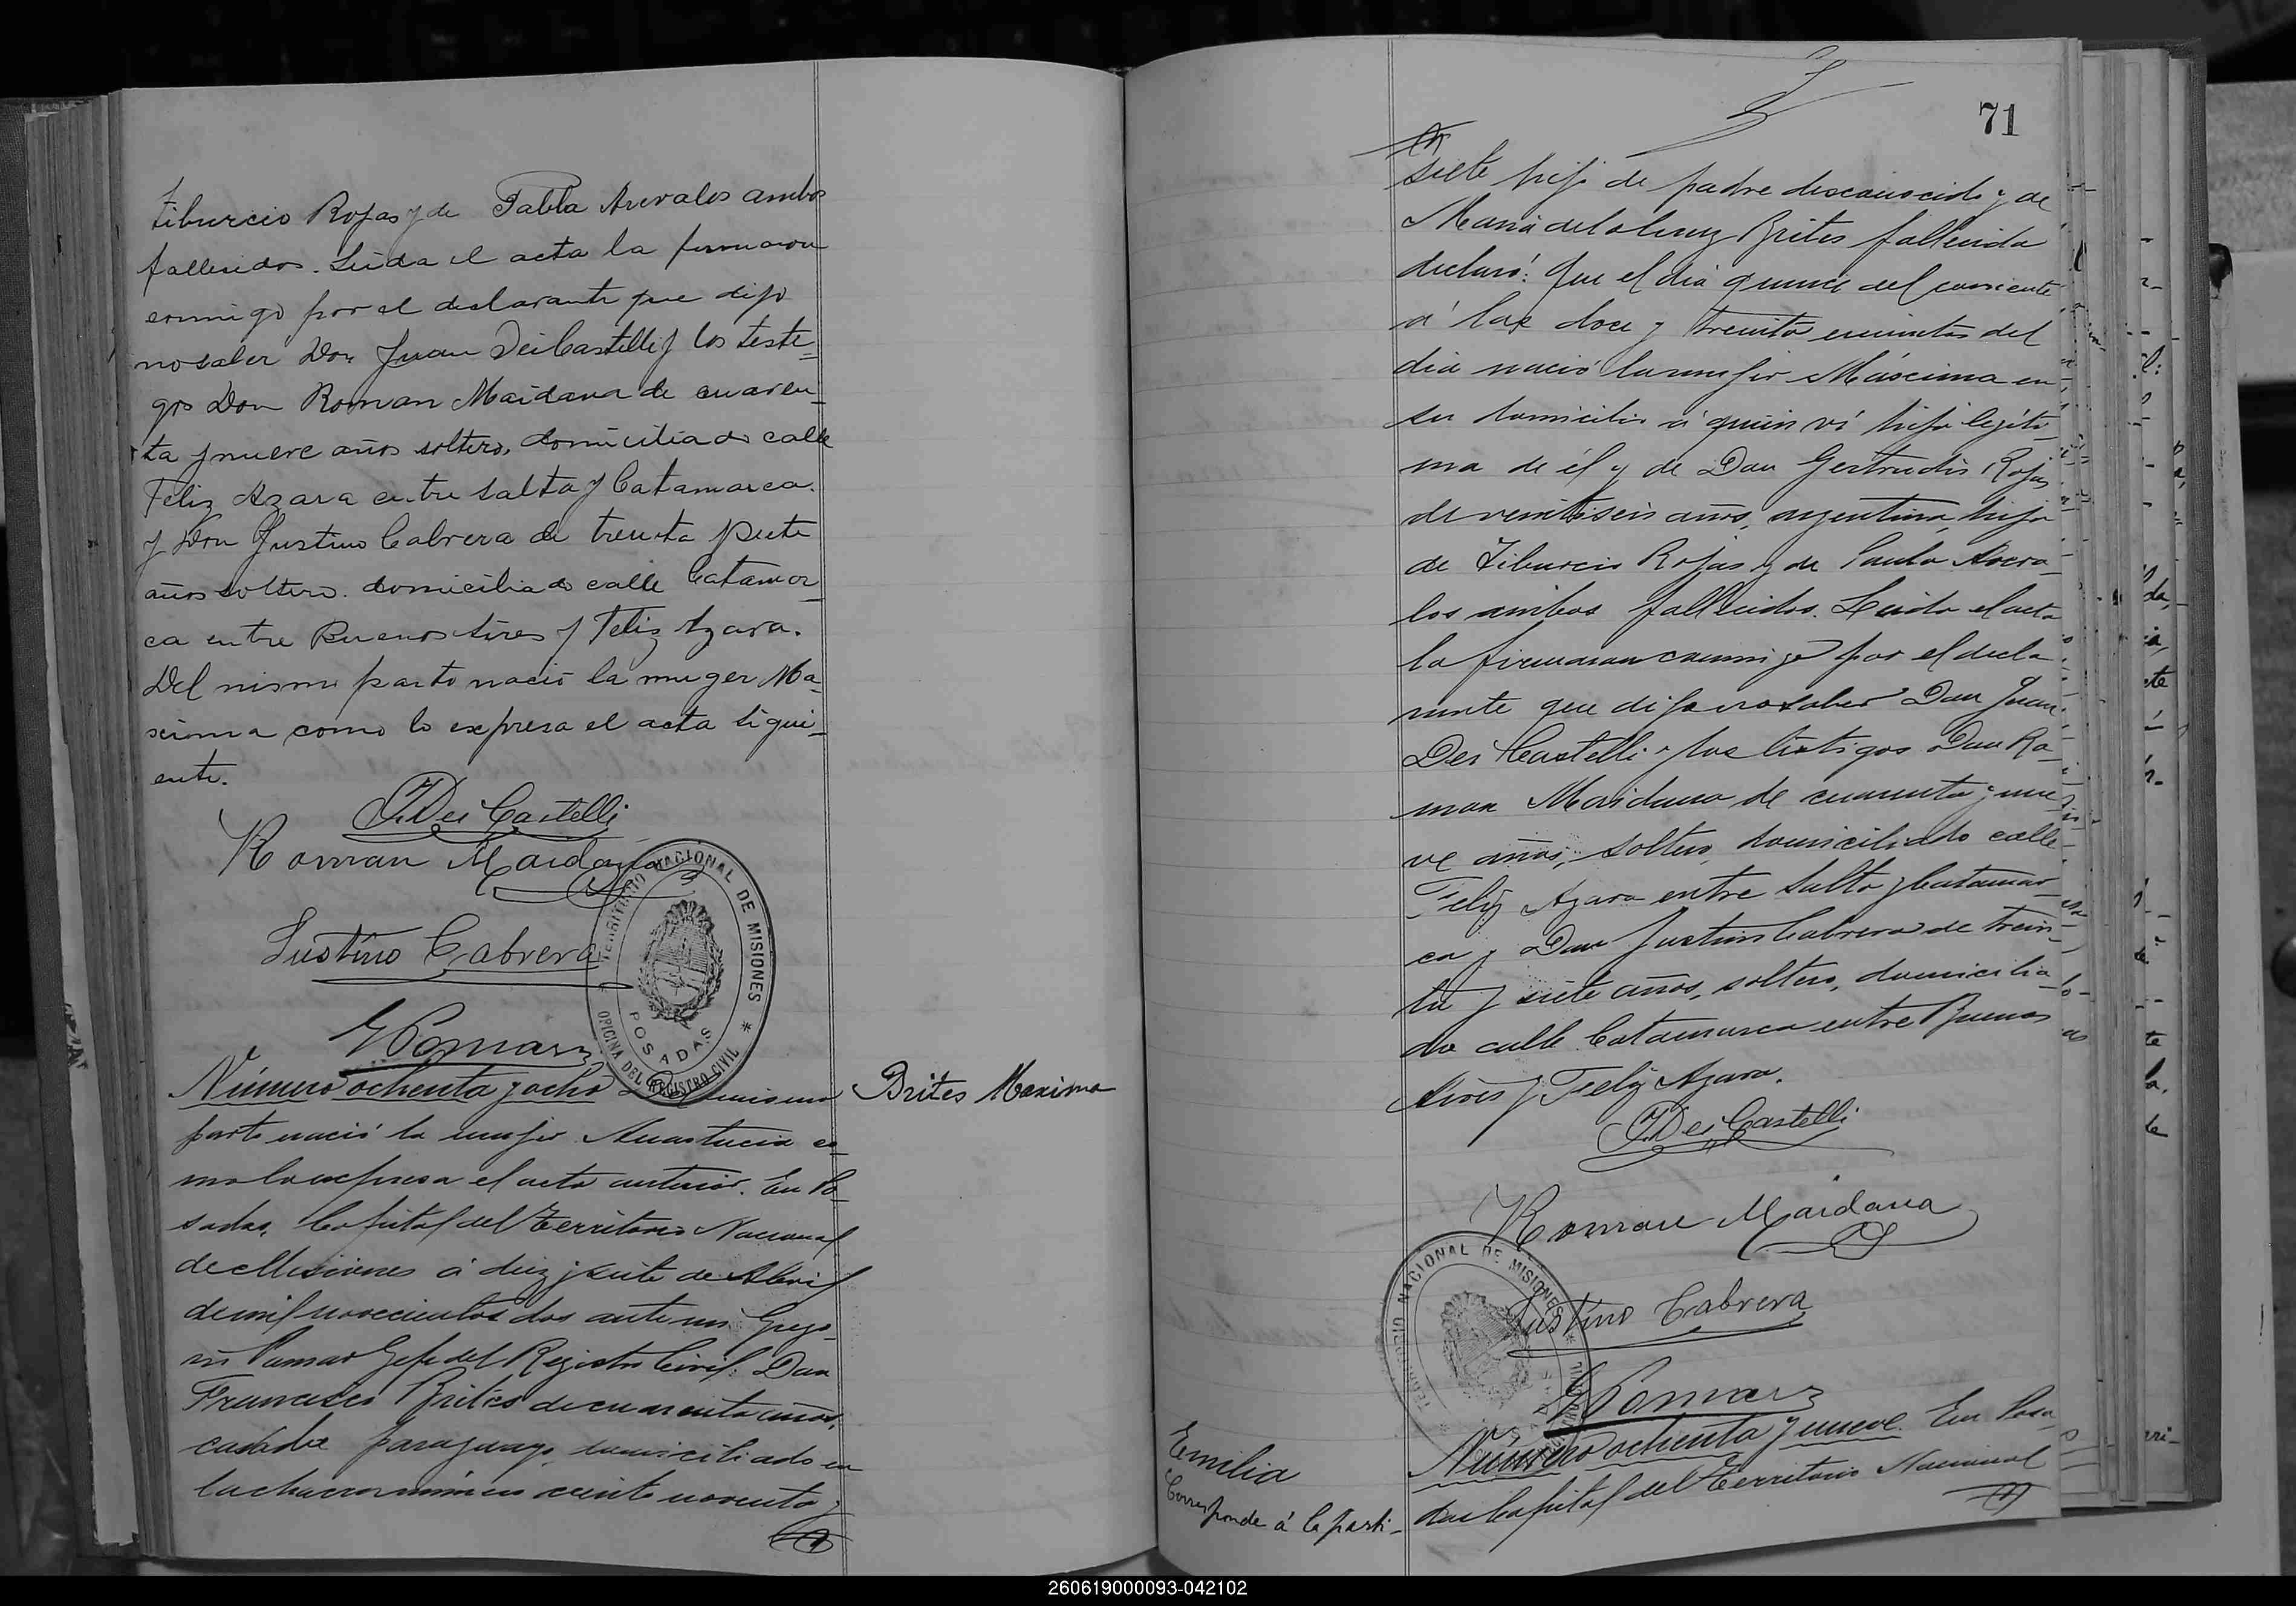 Tiburcio Rojas y de Pabla Arevalos ambos
fallecidos. Leida el acta la firmaron
conmigo por el declarante que dijo
no saber Don Juan Dei Castelli y los testi=
gos Don Roman Maidana de cuaren_
ta y nueve años soltero, domiciliado calle
Feliz Azara entre Salta y Catamarca.
y Don Justino Cabrera de treinta y siete
años soltero. domiciliado calle Catamar_
ca entre Buenos Aires y Feliz Azara.
Del mismo parto nació la muger Ma_
scima como lo expresa el acta sigui_
ente.
J. Dei Castelli
Roman Maidana
Justino Cabrera
GPomar
TERRITORIO NACIONAL DE MISIONES
OFICINA DEL REGISTRO CIVIL
POSADAS
Número ochenta y ocho mismo
Brites Maxima
parto nació la mujer Anastacia co_
mo lo expresa el acta anterior. En Po_
sadas, Capital del Territorio Nacional
de Misiones á diez y siete de Abril
de mil novecientos dos ante mi Grego_
rio Pomar Gefe del Registro Civil: Don
Francisco Brites de cuarenta años,
casado paraguayo domiciliado en
la chacra número ciento noventa y
71
siete hijo de padre desconocido y de
Maria del Brites fallecida
declaró: Que el dia quince del corriente
á las doce y treinta minutos del
dia nació la mujer Máscima en
su domicilio á quien ví hija legíti_
ma de él y de Don Gertrudis Rojas
de veintiseis años, argentina hija
de Tiburcio Rojas y de Paula Areva_
los ambos fallecidos. Leida el acta
la firmaron conmigo por el decla_
rante que dijo no saber Don Juan
Dei Castelli y los testigos Don Ro_
man Maidana de cuarenta y nue_
ve años, soltero, domiciliado calle
Feliz Azara entre Salta y Catamar_
ca y Don Justino Cabrera de trein_
ta y siete años, soltero, domicilia_
do calle Catamarca entre Buenos
Aires y Feliz Azara.
J. Dei Castelli
Roman Maidana
Justino Cabrera
GPomar
TERRITORIO NACIONAL DE MISIONES
Número ochenta y nueve. En Posa_
das Capital del Territorio Nacional
Emilia
Corresponde á la parti_
260619000093-042102